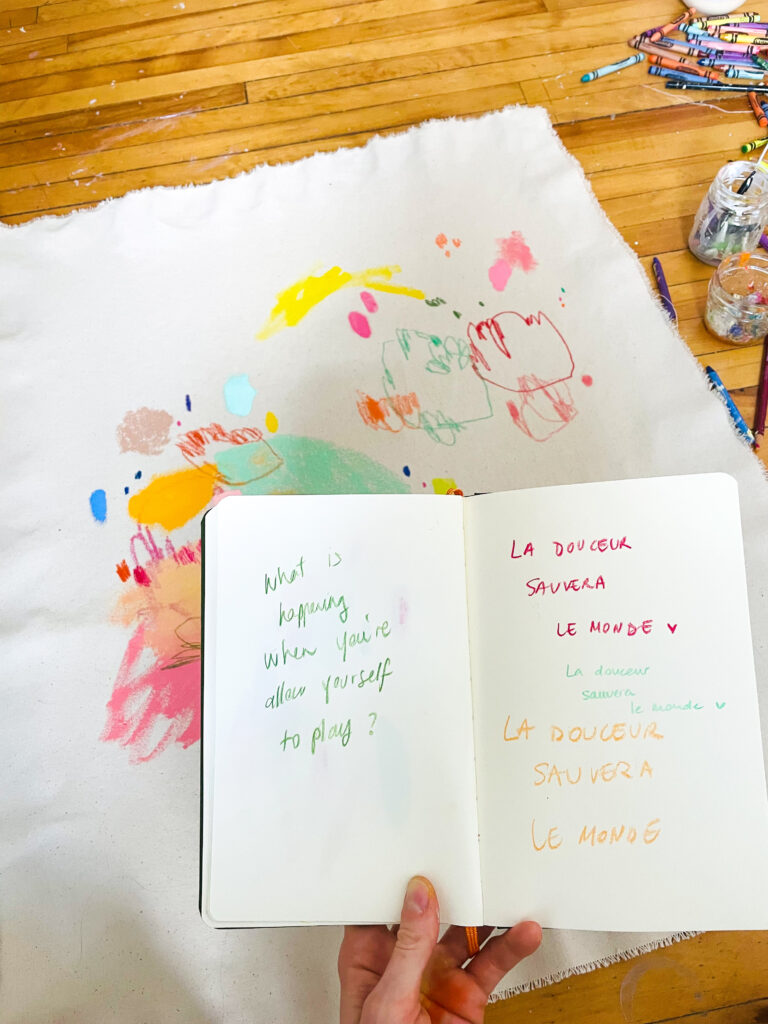 What is
happening
when you're
allow yourself
to play?
LA DOUCEUR
SAUVERA
LE MONDE ♥
La douceur
sauvera
le monde ♥
LA DOUCEUR
SAUVERA
LE MONDE